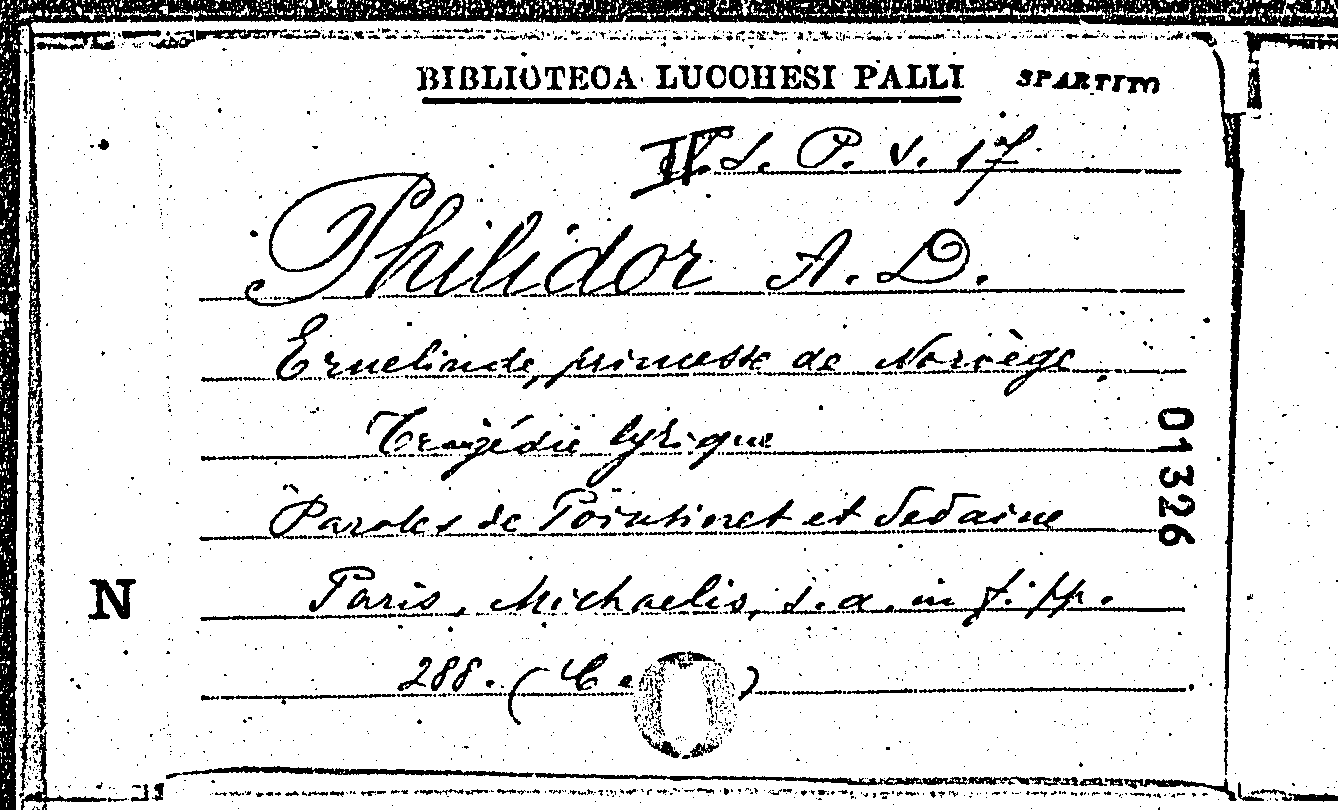 BIBLIOTECA LUCCHESI PALLI SPARTITO
IV. L. P. V. 17
Philidor A. D.
Ernelinde, princesse de Norvège.
Tragédie lyrique
Paroles de Pointinet et Sedaine
Paris, Michaelis, s. a. in f. pp.
288. (C. )
01326
N